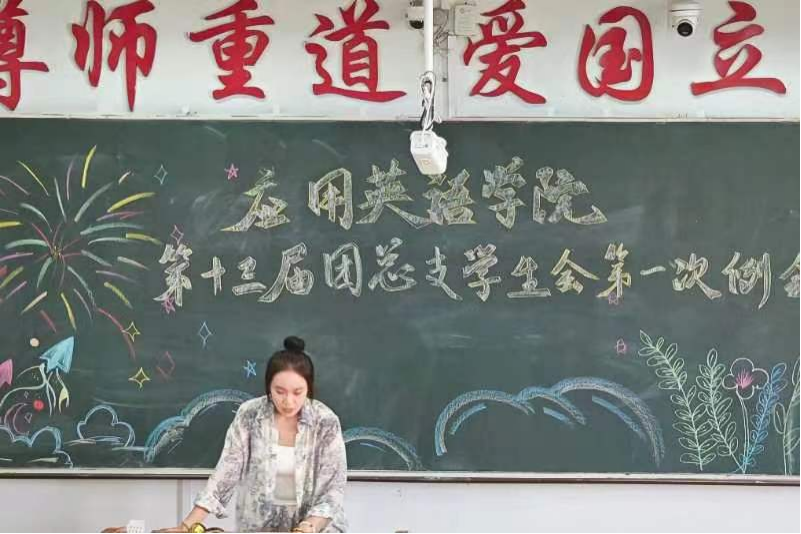 尊师重道 爱国立
应用英语学院
第十三届团总支学生会第一次例会